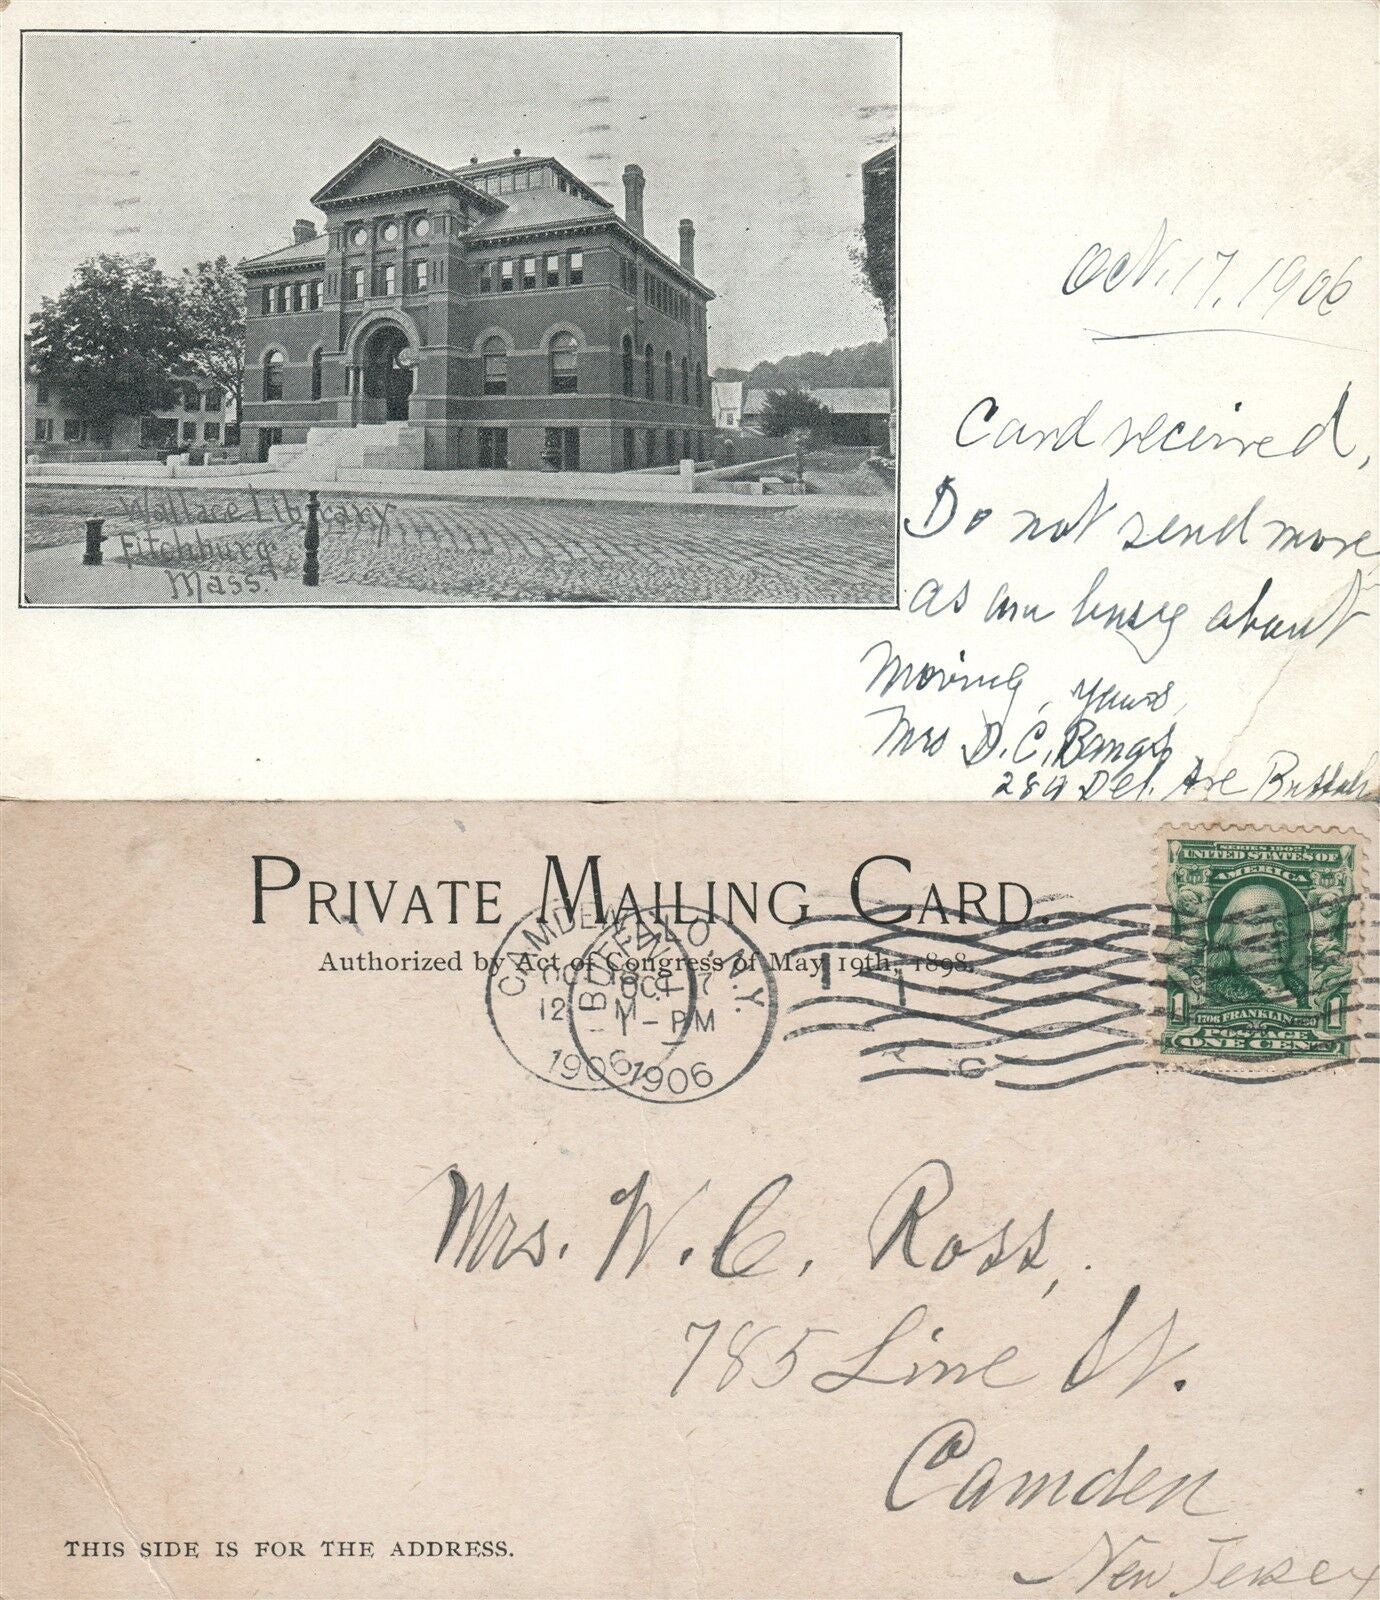 Wallace Library
Fitchburg
Mass.
Oct. 17, 1906
Card received,
Do not send more
as am busy about
Moving, yours,
Mrs D. C. Bangs
Del. Ave Buffalo
PRIVATE MAILING CARD.
Authorized by Act of Congress of May 19th, 1898.
CAMDEN
OCT 18
12 M
1906
BUFFALO, N.Y.
OCT 17
1 - PM
1906
SERIES 1902
UNITED STATES OF
AMERICA
1706 FRANKLIN 1790
1 POSTAGE 1
ONE CENT
Mrs. W. C. Ross,
785 Line St.
Camden
New Jersey
THIS SIDE IS FOR THE ADDRESS.